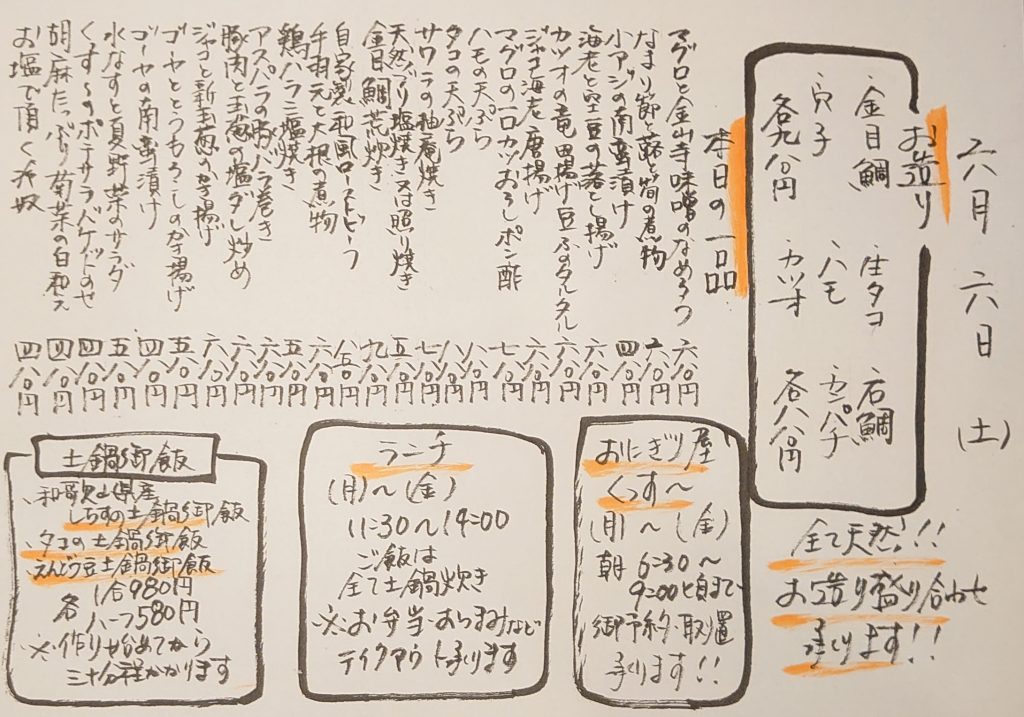 六月 六日 (土)
お造り
金目鯛 生タコ 石鯛
穴子 ハモ カンパチ
各九八〇円 カツオ 各八八〇円
全て天然!!
お造り盛り合わせ
承ります!!
本日の一品
マグロと金山寺味噌のなめろう 六八〇円
なまり節と蕗と筍の煮物 六八〇円
小アジの南蛮漬け 四八〇円
海老と空豆の落とし揚げ 六八〇円
カツオの竜田揚げ豆ふのタルタル 六八〇円
ジャコ海老唐揚げ 六八〇円
マグロの一口カツおろしポン酢 七八〇円
ハモの天ぷら 八八〇円
タコの天ぷら 八八〇円
サワラの柚庵焼き 七八〇円
天然ブリ塩焼き又は照り焼き 五八〇円
金目鯛荒炊き 九八〇円
自家製和風ローストビーフ 八五〇円
手羽元と大根の煮物 六八〇円
鶏ハラミ塩焼き 五八〇円
アスパラの豚バラ巻き 六八〇円
豚肉と玉葱の塩ダレ炒め 六八〇円
ジャコと新玉葱のかき揚げ 六八〇円
ゴーヤととうもろこしのかき揚げ 五八〇円
ゴーヤの南蛮漬け 四八〇円
水なすと夏野菜のサラダ 五八〇円
くっす〜のポテサラバゲットのせ 四八〇円
胡麻たっぷり菊菜の白和え 四八〇円
お塩で頂く冷奴 四八〇円
おにぎり屋
くっす〜
(月)〜(金)
朝 6:30〜
9:00頃まで
御予約・取置
承ります!!
ランチ
(月)〜(金)
11:30〜14:00
ご飯は
全て土鍋炊き
※お弁当・おつまみなど
テイクアウト承ります
土鍋御飯
、和歌山県産
しらすの土鍋御飯
、タコの土鍋御飯
、えんどう豆土鍋御飯
各 1合980円
ハーフ580円
※作り始めてから
三十分程かかります